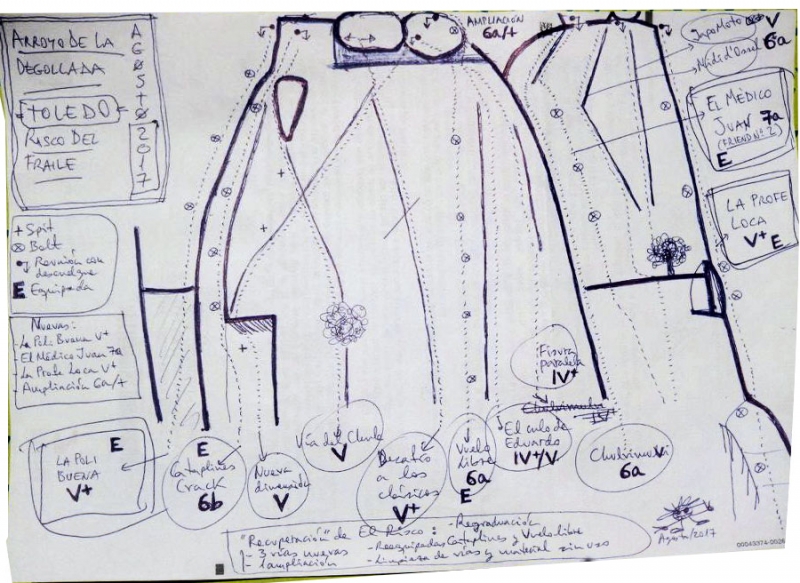 ARROYO DE LA
DEGOLLADA
TOLEDO
RISCO DEL
FRAILE
AGØSTØ
2017
+ Spit
⊗ Bolt
Reunión con
descuelgue
E Equipada
Nuevas:
- La Poli Buena V+
- El Médico Juan 7a
- La Profe Loca V+
- Ampliación 6a/+
AMPLIACIÓN
6a/+
V
6a
EL MÉDICO
JUAN 7a
(FRIEND Nº 2)
E
LA PROFE
LOCA
V+ E
Fisura
paralela
IV+
LA POLI
BUENA
V+
E
E
Cataplines
Crack
6b
Nueva
dimensión
V
Vía del Chule
V
a los
clásicos
V+
Vuelo
Libre
6a
E
El culo de
Eduardo
IV+/V
6a
"Recuperación" de El Risco:
- 3 vías nuevas
- 1 ampliación
- Regraduación
- Reequipadas Cataplines y Vuelo libre
- Limpieza de vías y material sin uso
Agosto/2017